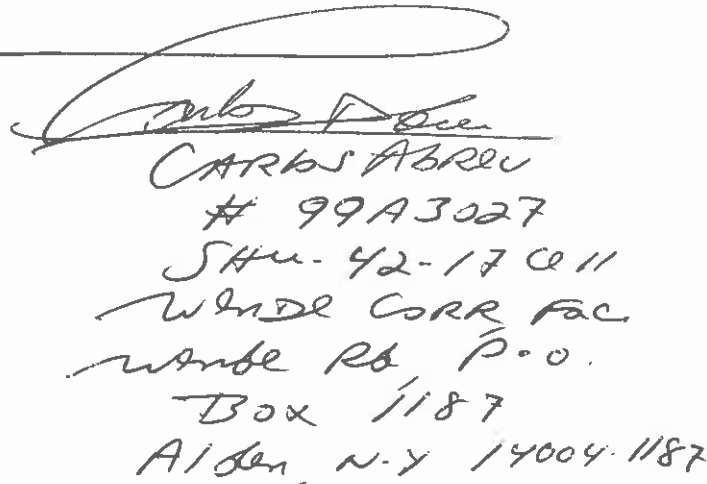 Carlos Abreu
CARlos ABReu
# 99A3027
SHU-42-17 Cell
WENDE CORR FAC.
WENDE Rd, P.O.
Box 1187
Alden, N.Y 14004-1187